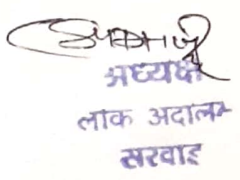 अध्यक्ष
लोक अदालत
सरवाड़